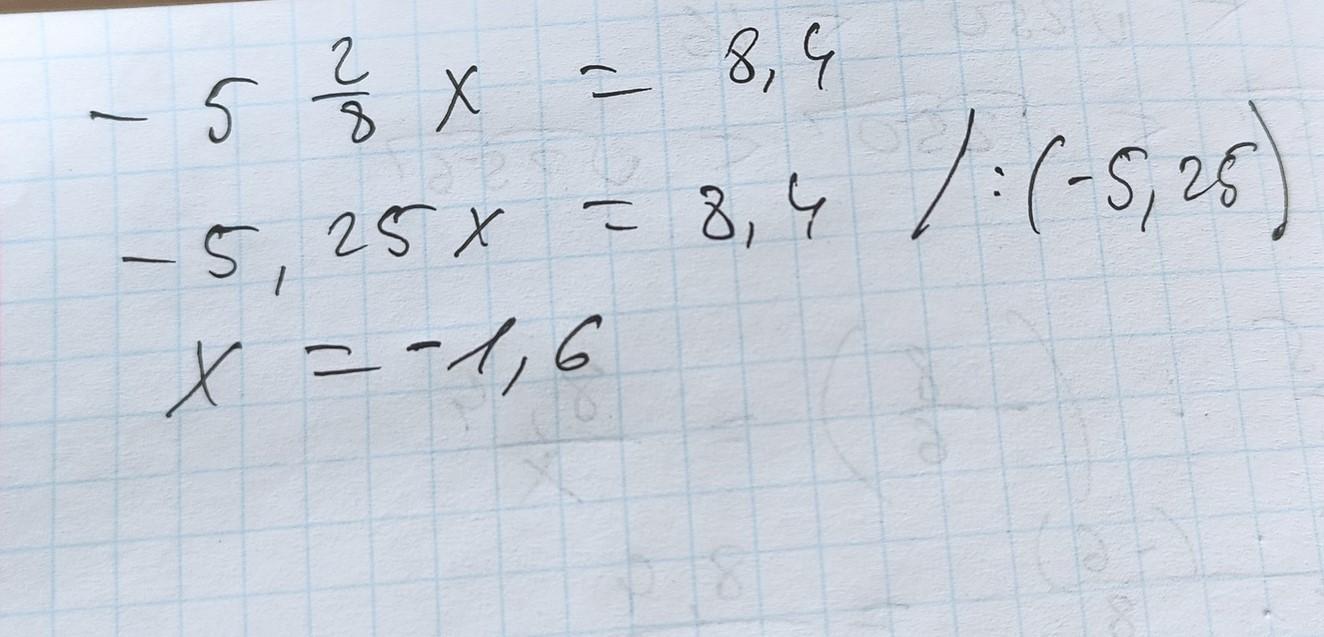 - 5 2/8 x = 8,4
-5,25x = 8,4 /:(-5,25)
x = -1,6